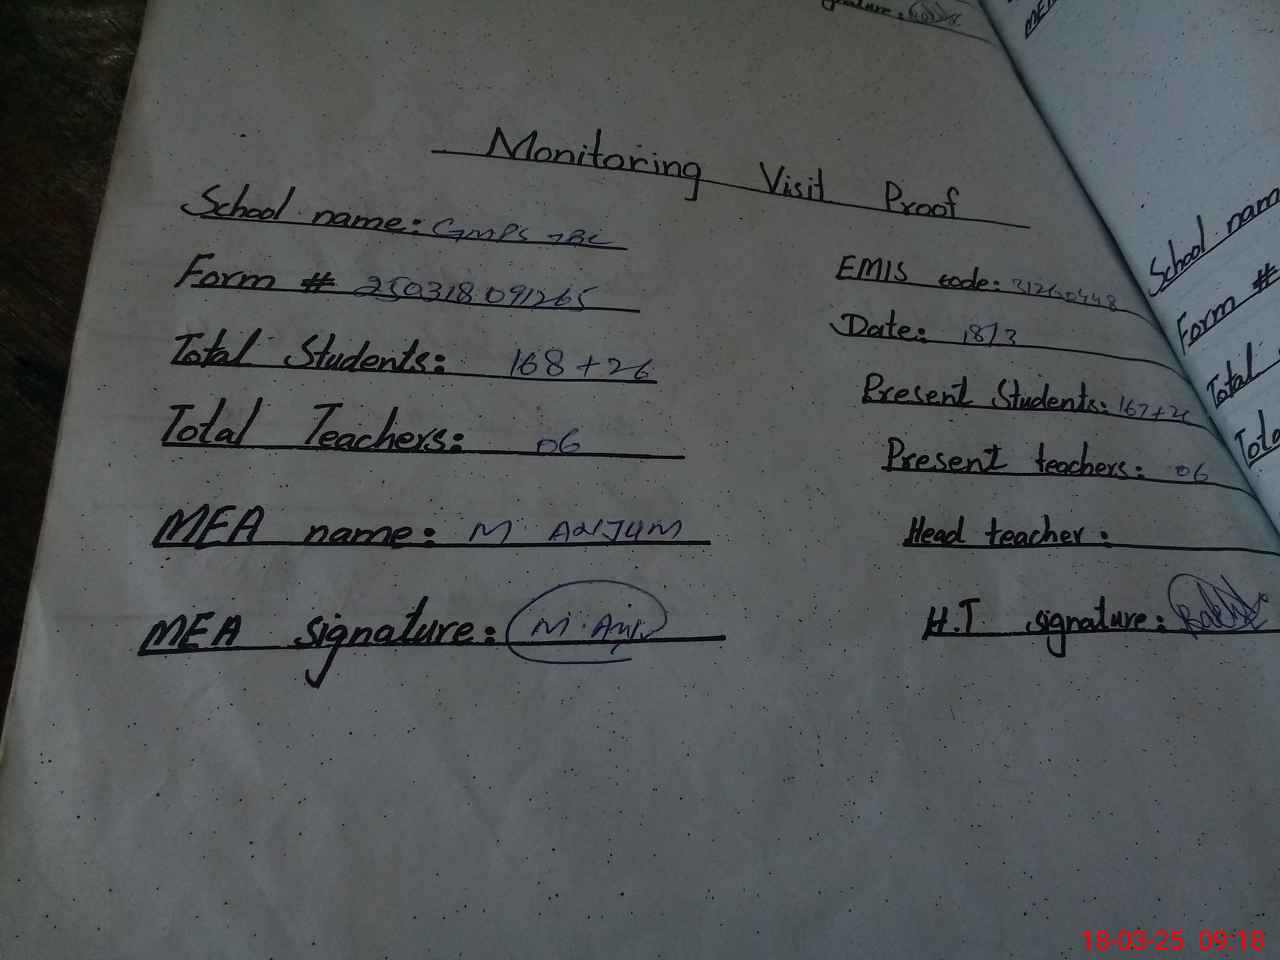 Monitoring Visit Proof
School name: GMPS 7BC
EMIS code: 31260448
Form # 250318091265
Date: 18/3
Total Students: 168+26
Present Students: 167+26
Total Teachers: 06
Present teachers: 06
MEA name: M. ANJUM
Head teacher:
MEA signature: M. Anju
H.T signature:
School nam
Form #
Total
Tota
18-03-25 09:18